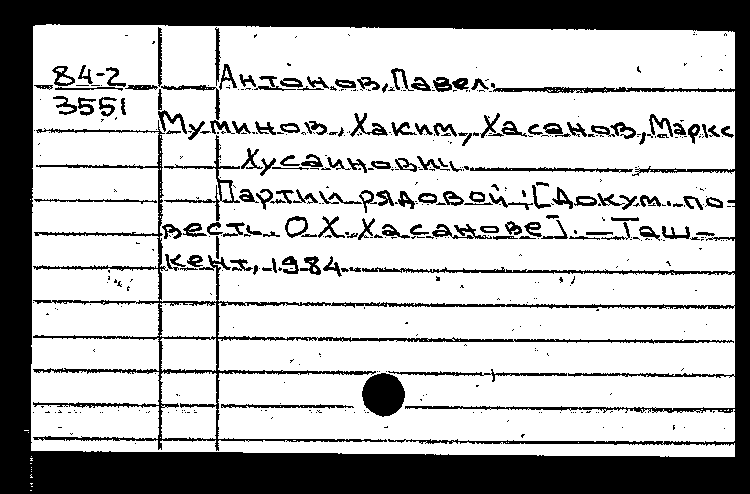 84-2
3551
Антонов, Павел.
Муминов, Хаким, Хасанов, Маркс
Хусаинович.
Партии рядовой: [Докум. по-
весть. О Х. Хасанове]. — Таш-
кент, 1984.